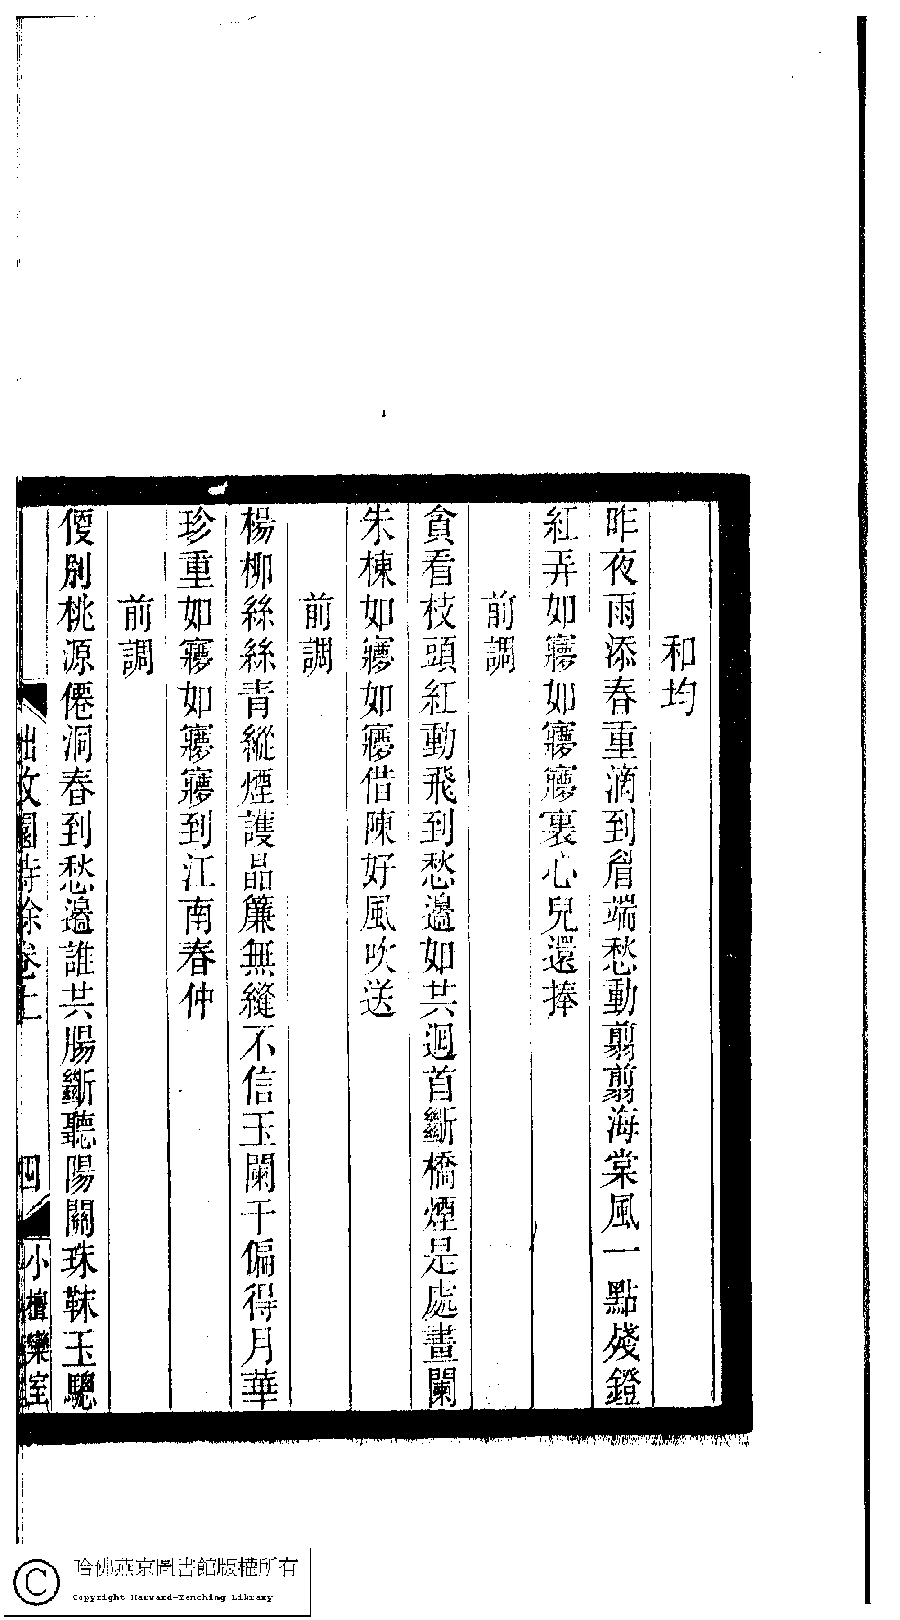 和均
昨夜雨添春重滴到眉端愁動翦翦海棠風一點殘鐙
紅弄如㝱如㝱㝱裏心兒還捧
前調
貪看枝頭紅動飛到愁邊如共迴首斷橋煙是處畫闌
朱棟如㝱如㝱借陳好風吹送
前調
楊柳絲絲青縱煙護晶簾無縫不信玉闌干偏得月華
珍重如㝱如㝱㝱到江南春仲
前調
便別桃源僊洞春到愁邊誰共腸斷聽陽關珠靺玉驄
園詩餘卷上
四
小檀欒室
哈佛燕京圖書館版權所有
Copyright Harvard-Yenching Library